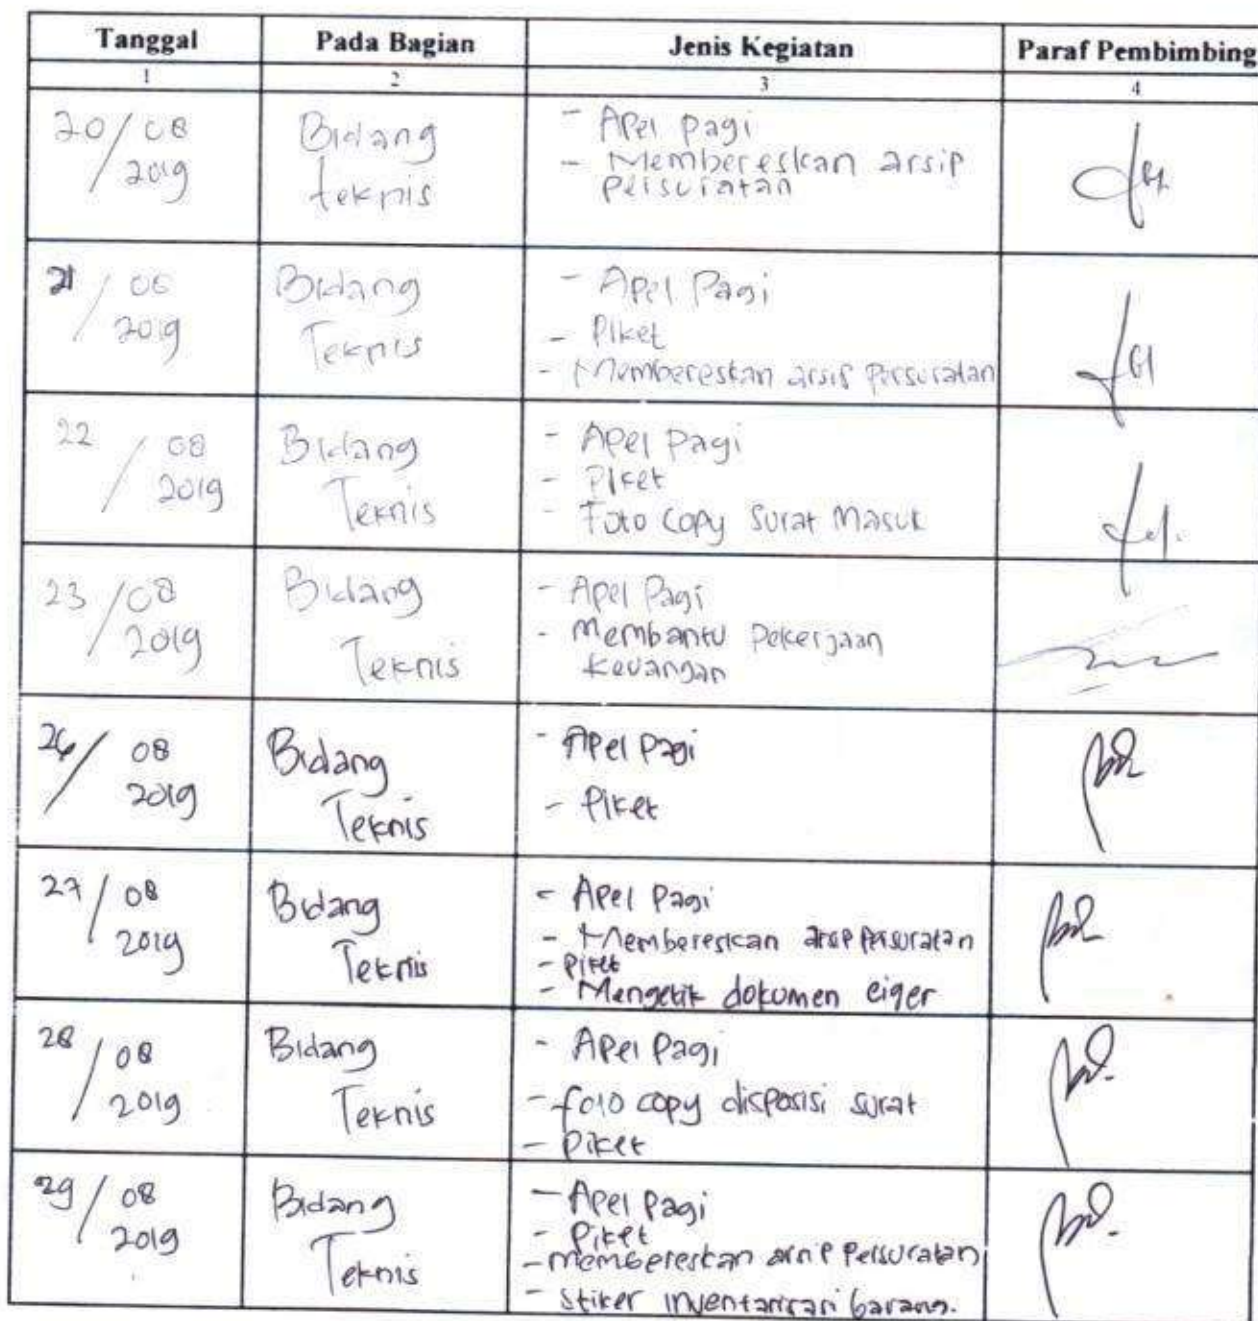 Tanggal Pada Bagian Jenis Kegiatan Paraf Pembimbing
1 2 3 4
20/08 2019
Bidang
teknis
- Apel pagi
- Membereskan arsip
persuratan
21/08 2019
Bidang
Teknis
- Apel Pagi
- Piket
- Membereskan arsip Persuratan
22/08 2019
Bidang
Teknis
- Apel pagi
- Piket
- Foto Copy Surat Masuk
23/08 2019
Bidang
Teknis
- Apel Pagi
- Membantu Pekerjaan
Keuangan
26/08 2019
Bidang
Teknis
- Apel Pagi
- Piket
27/08 2019
Bidang
Teknis
- Apel Pagi
- Membereskan arsip Persuratan
- Piket
- Mengetik dokumen eiger
28/08 2019
Bidang
Teknis
- Apel Pagi
- foto copy disposisi surat
- Piket
29/08 2019
Bidang
Teknis
- Apel Pagi
- Piket
- membereskan arsip Persuratan
- Stiker inventarisasi barang.